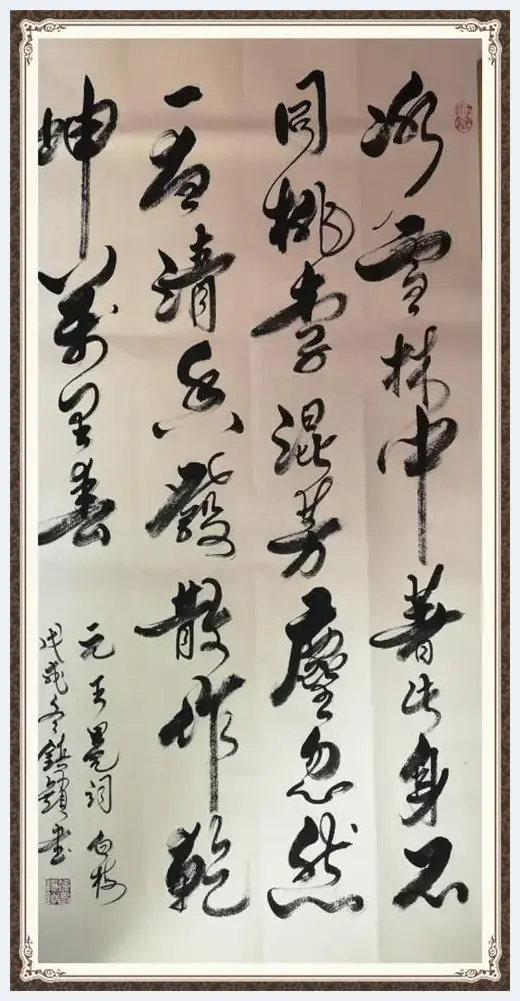 冰雪林中著此身不
同桃李混芳塵忽然
一夜清香發散作乾
坤萬里春
元王冕詞 白梅
戊戌冬書